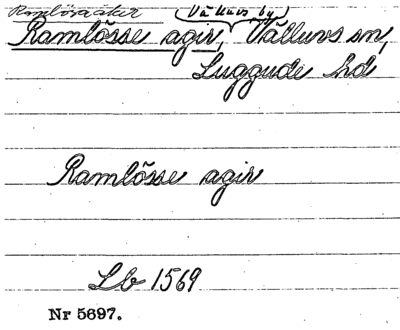 Ramlösaåkar (Välluvs by)
Ramlösse agir, Välluvs sn,
Luggude hd
Ramlösse agir
Lb 1569
Nr 5697.